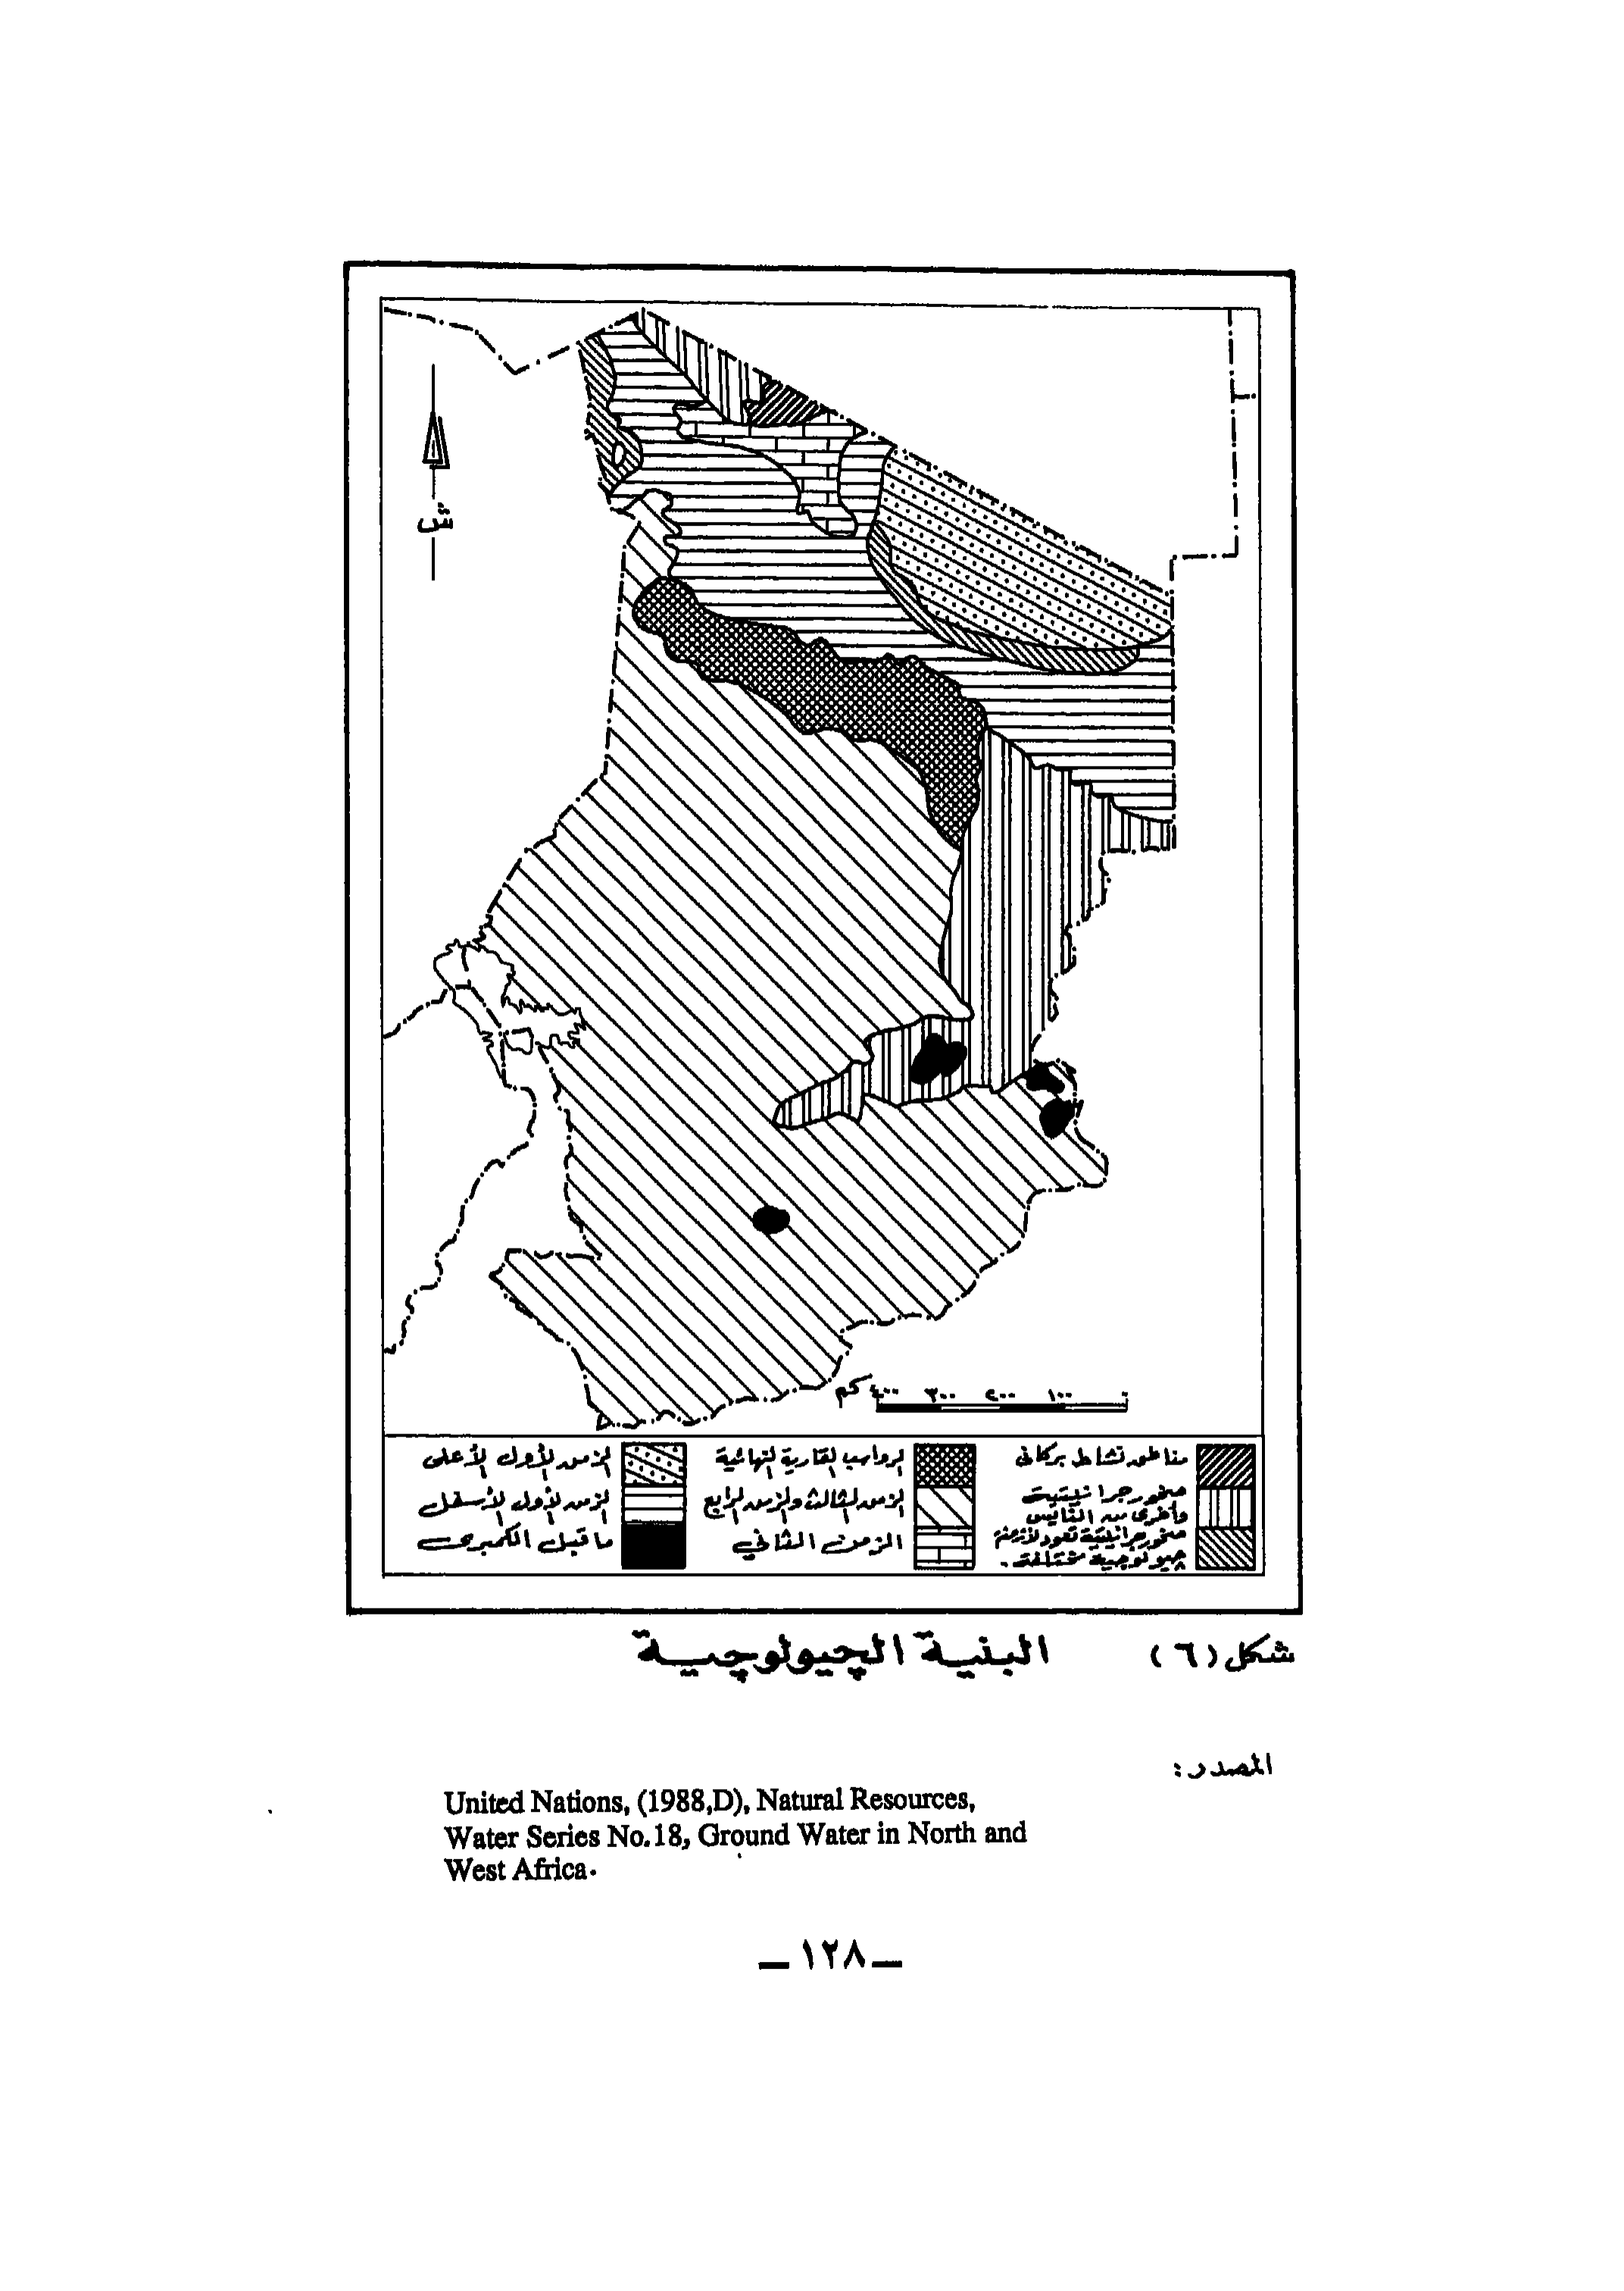 ش
٤٠٠ كم ٣٠٠ ٢٠٠ ١٠٠ ٠
مناطق نشاط بركانى
صخور جرانيتيت
وأخرى من النايس
صخور جرانيتية تعود لأزمنة
جيولوجية مختلفة .
الرواسب القارية النهائية
الزمن الثالث والزمن الرابع
الزمن الثاني
الزمن الأول الأعلى
الزمن الأول الأسفل
ما قبل الكمبرى
شكل (٦) البنية الچيولوچية
المصدر :
United Nations, (1988,D), Natural Resources,
Water Series No.18, Ground Water in North and
West Africa.
— ١٢٨ —